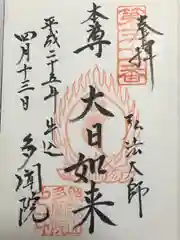 奉拝
弘法大師
本尊
大日如来
平成二十五年
牛込
四月十三日
多聞院